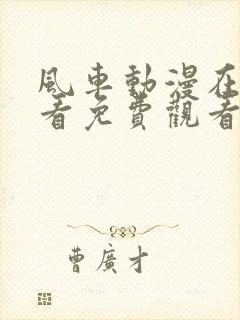 風車動漫在
看免費觀看
曹廣才